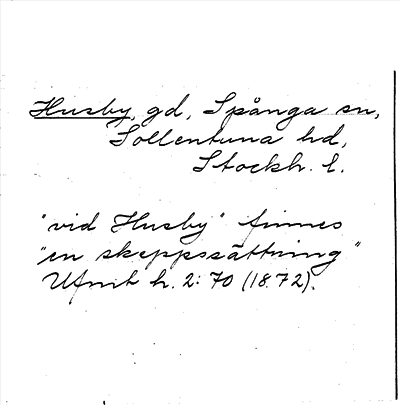 Husby, gd, Spånga sn,
Sollentuna hd,
Stockh. l.
"vid Husby" finnes
"en skeppssättning"
Ufmt h. 2: 70 (1872).